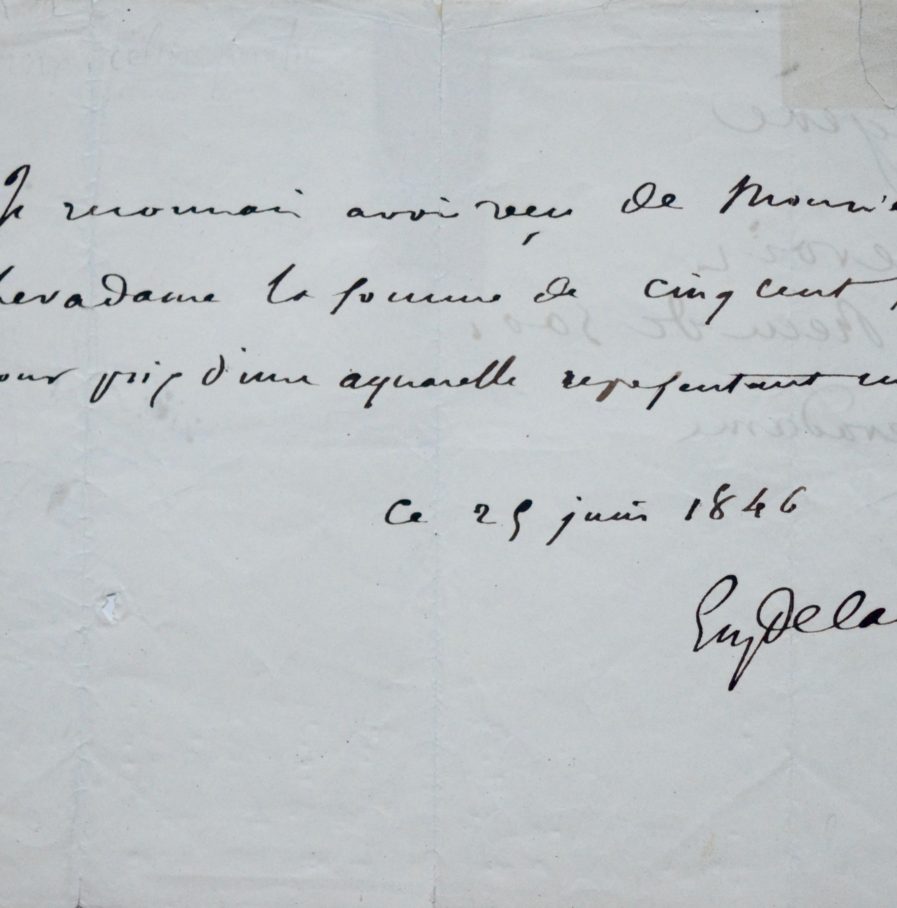 Je reconnais avoir reçu de Monsie
levadame la somme de cinq cent
our prix d'une aquarelle representant un
Ce 25 juin 1846
Eug Dela